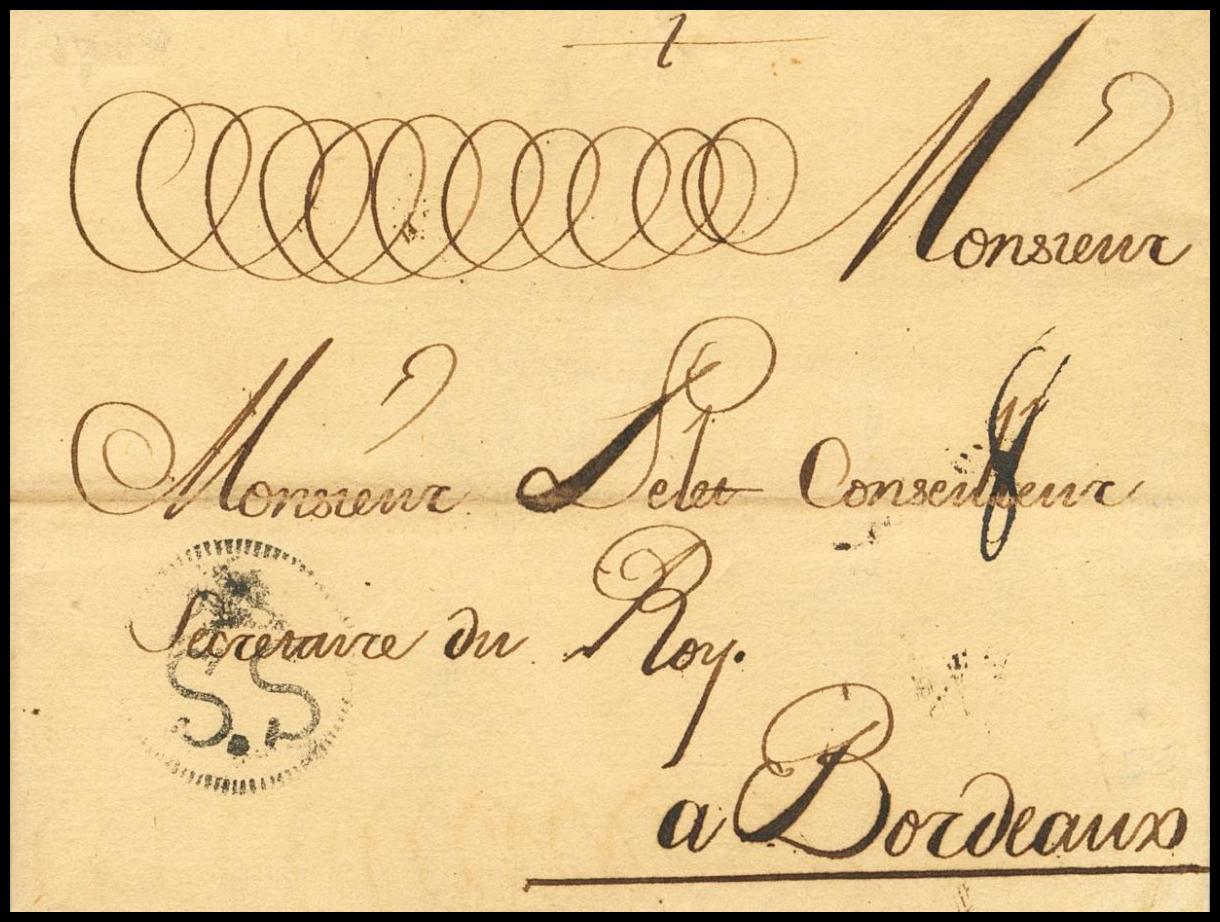 Monsieur
Monsieur Pelet Conseilleur
8
Secretaire du Roy.
S.S
a Bordeaux